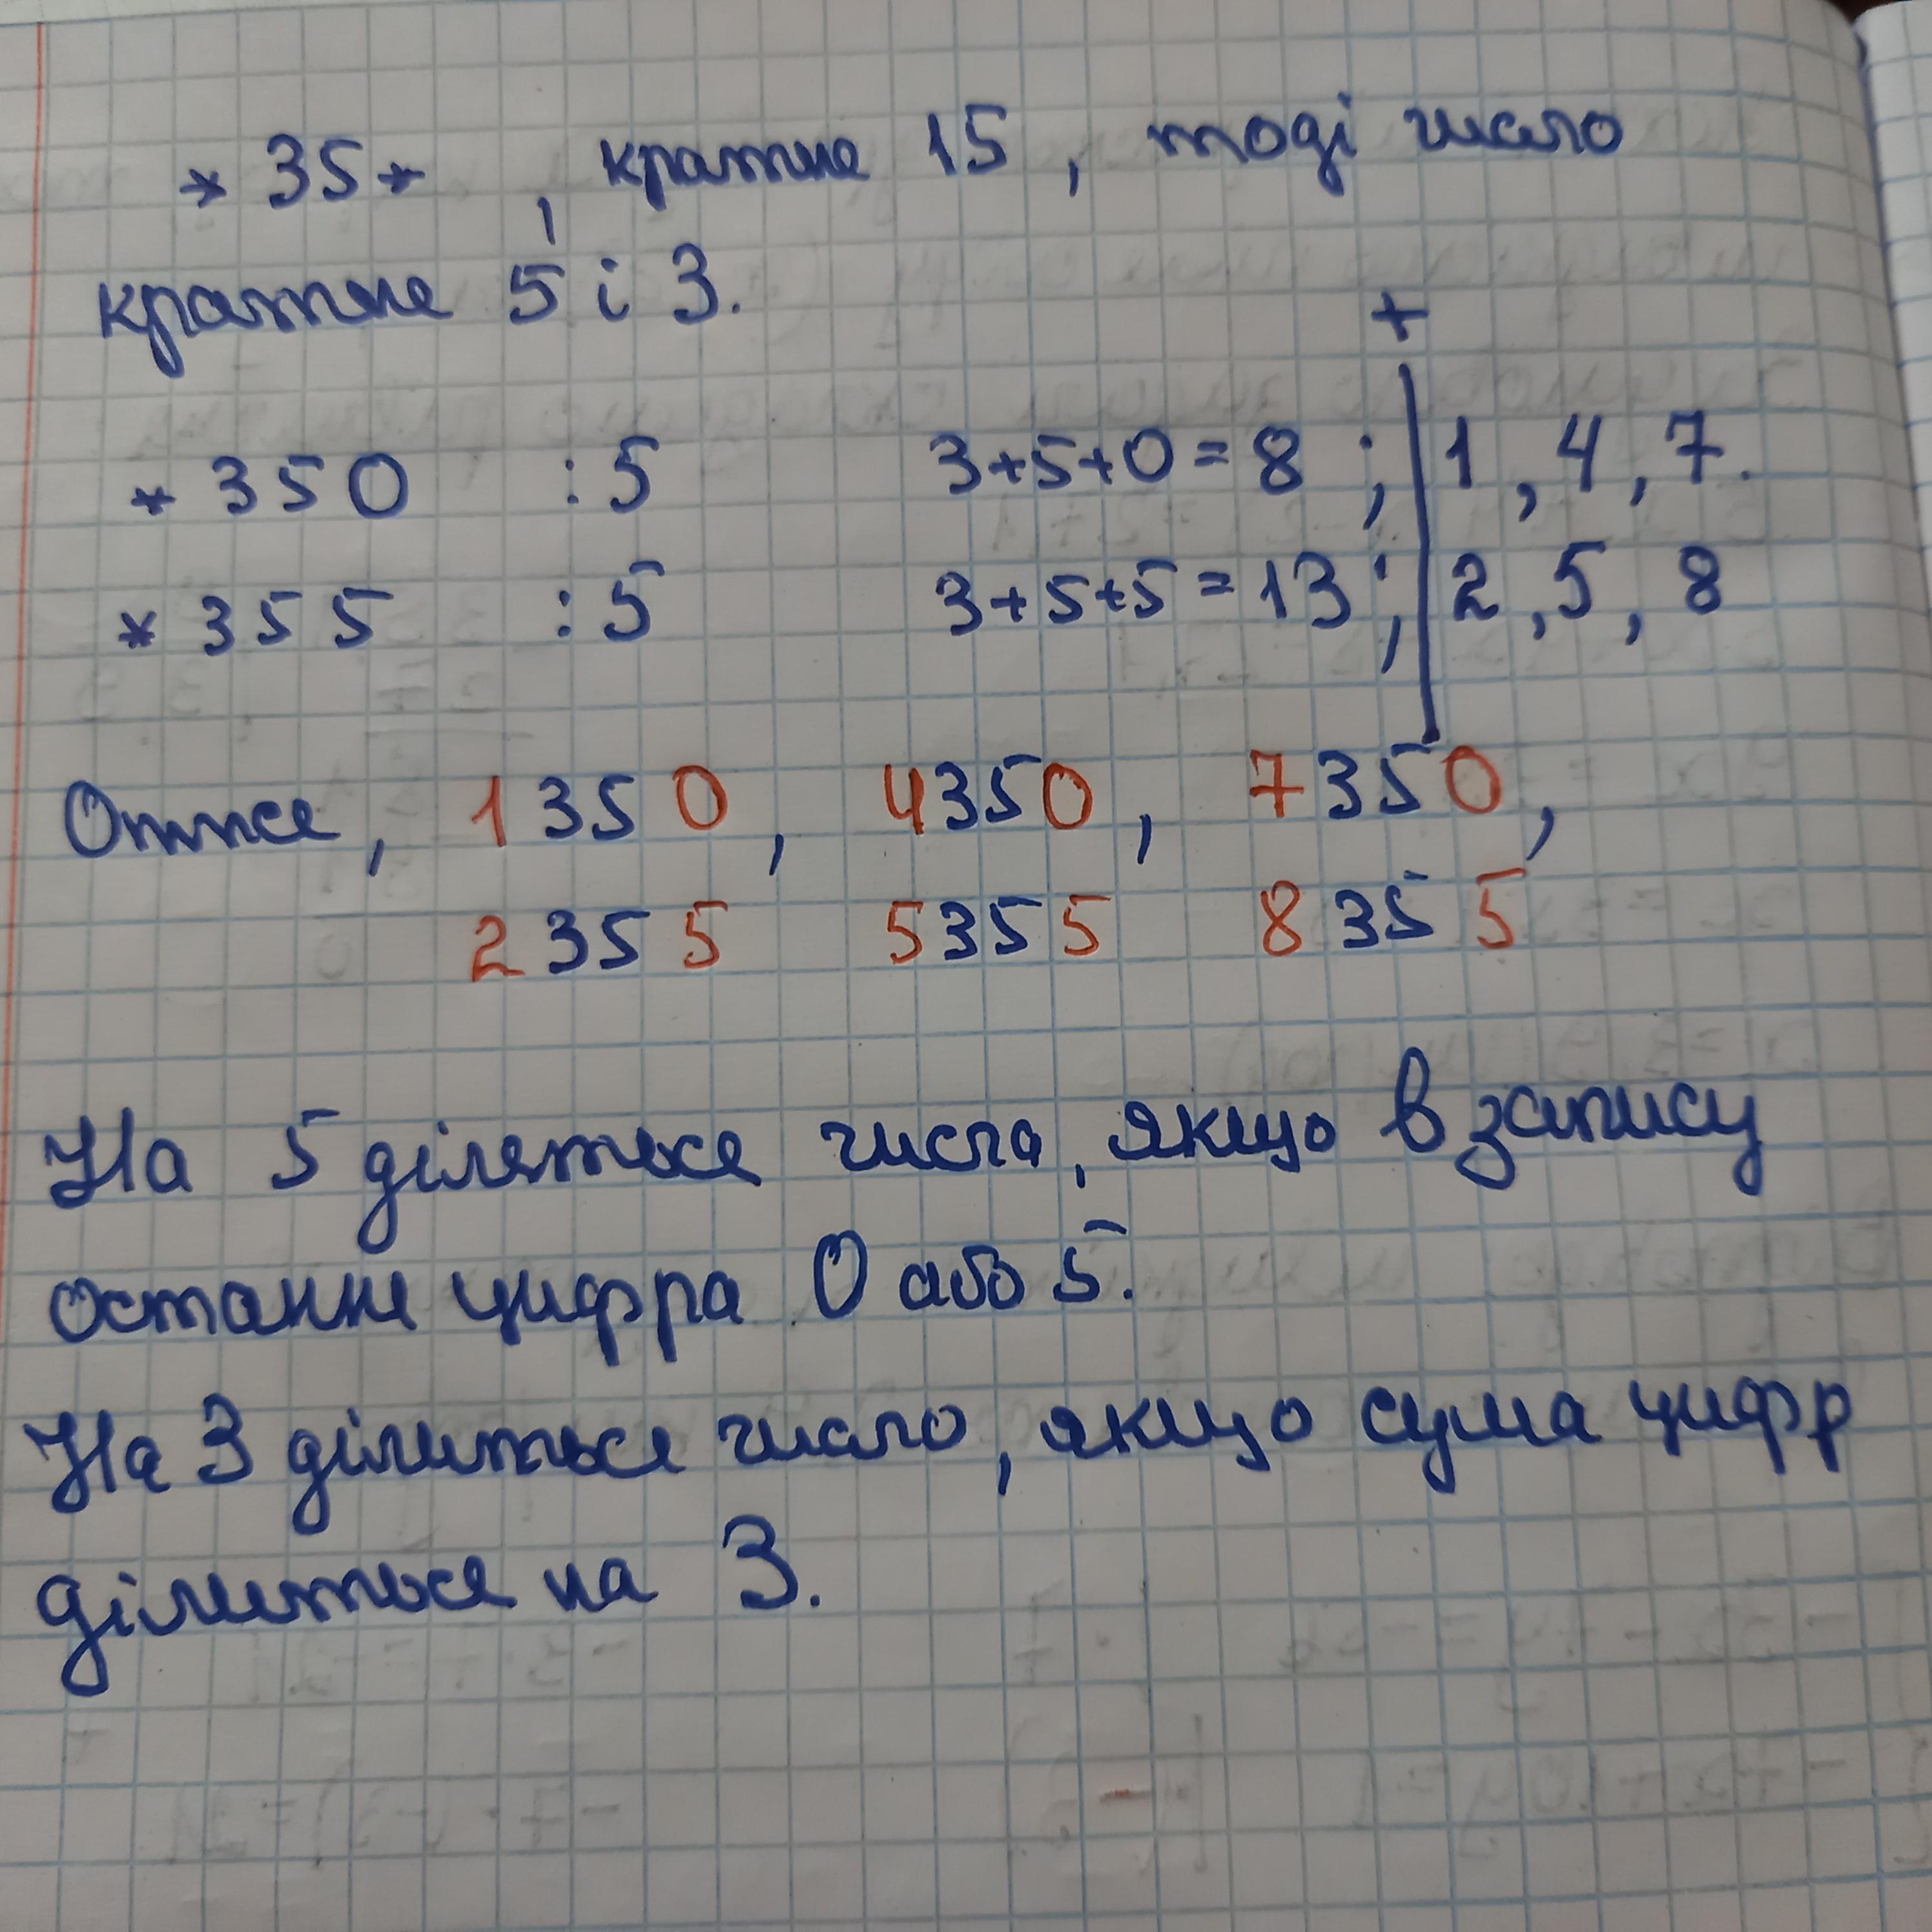 *35*, кратне 15, тоді число
кратне 5 і 3.
+
*350 :5 3+5+0=8; 1, 4, 7.
*355 :5 3+5+5=13; 2, 5, 8
Отже, 1350, 4350, 7350,
2355 5355 8355
На 5 діляться числа, якщо в запису
остання цифра 0 або 5.
На 3 ділиться число, якщо сума цифр
ділиться на 3.